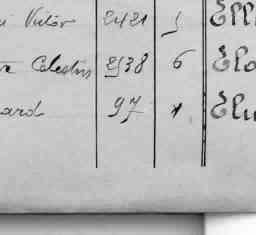 Victor 2421 5 Ell
Celestin 2538 6 Elo
ard 97 1 Elu